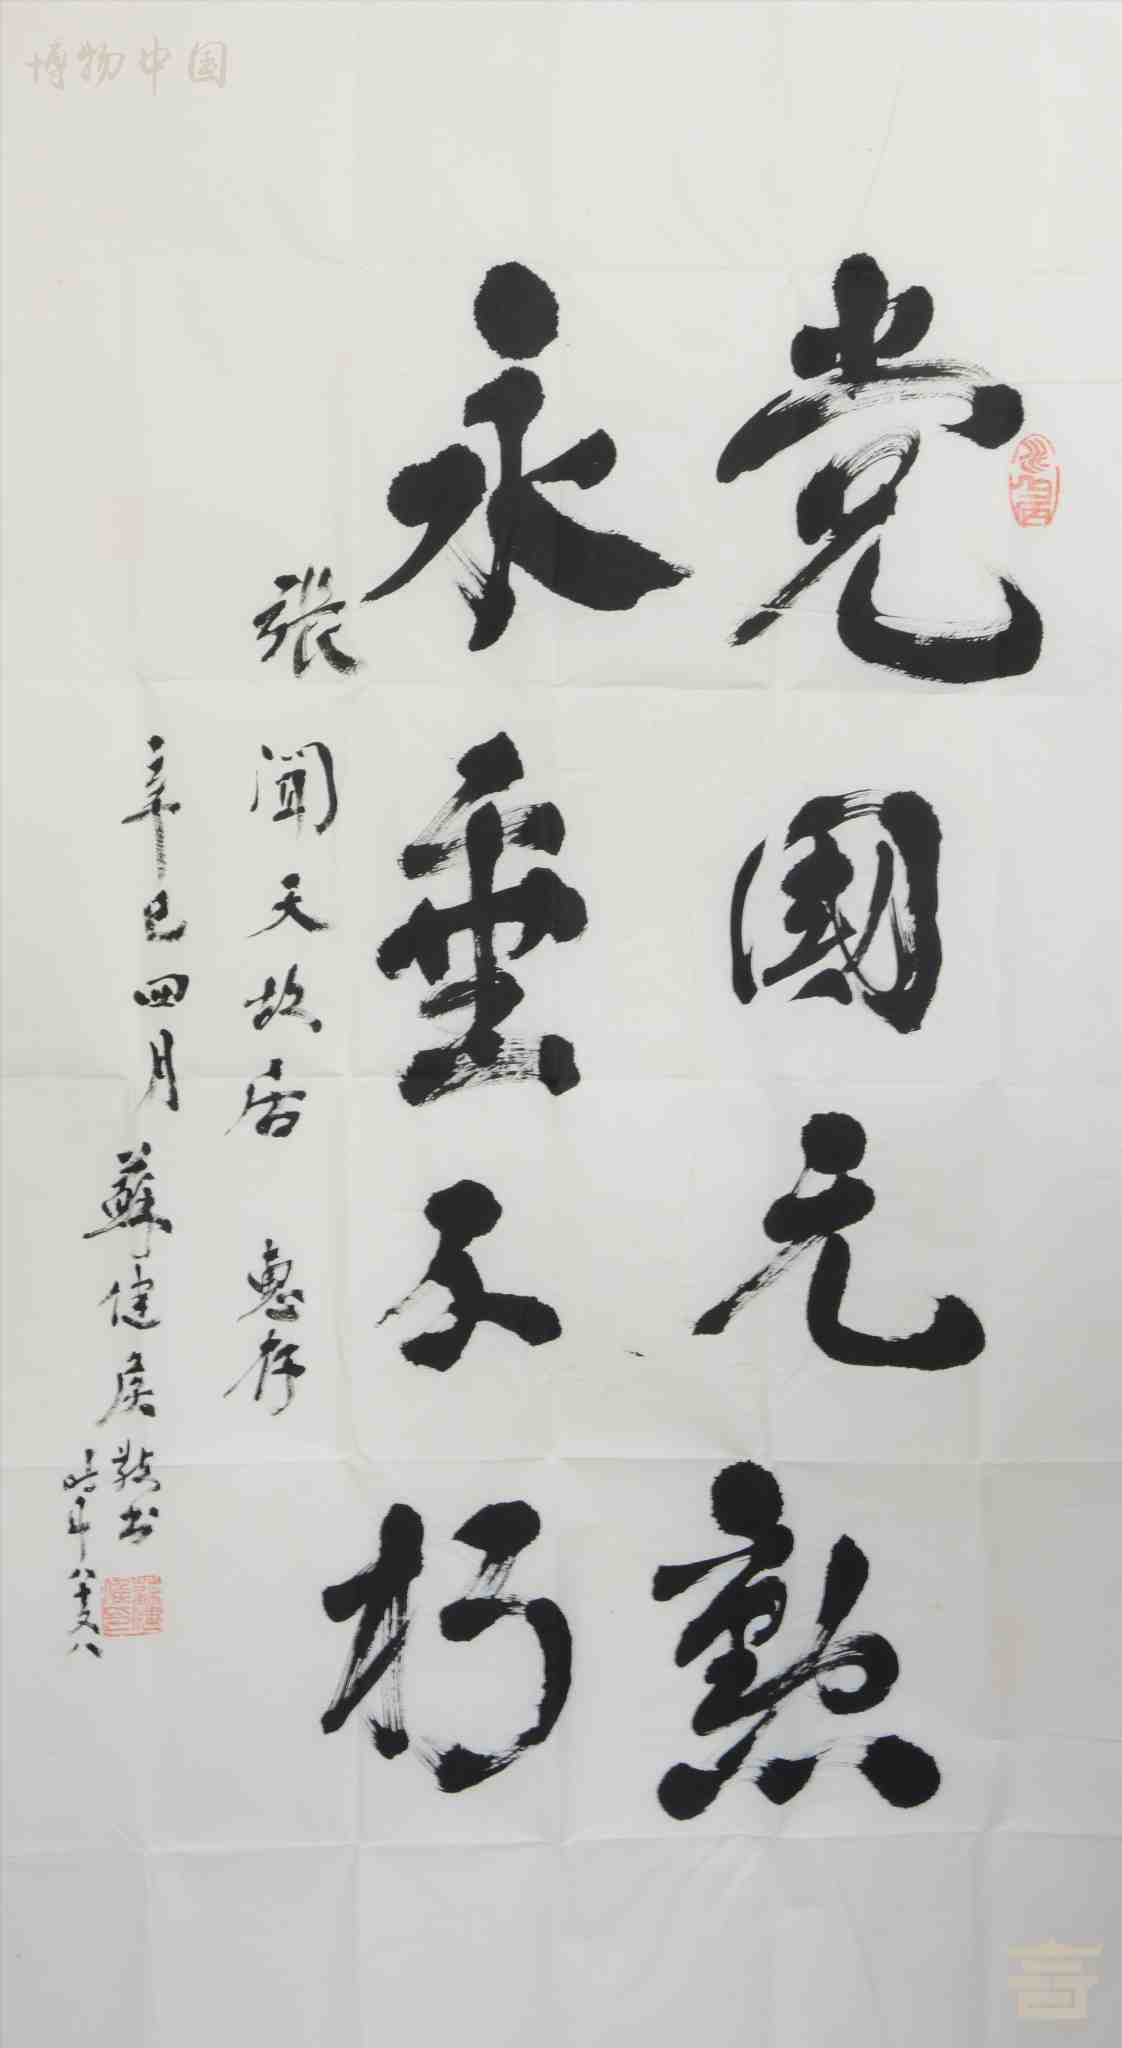 党國元勲
永垂不朽
張聞天故居 惠存
辛巳四月 蘇健侯敬書
時年八十又八
博物中国